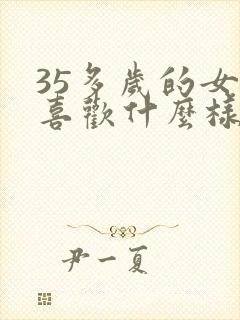 35多歲的女
喜歡什麼樣
尹一夏